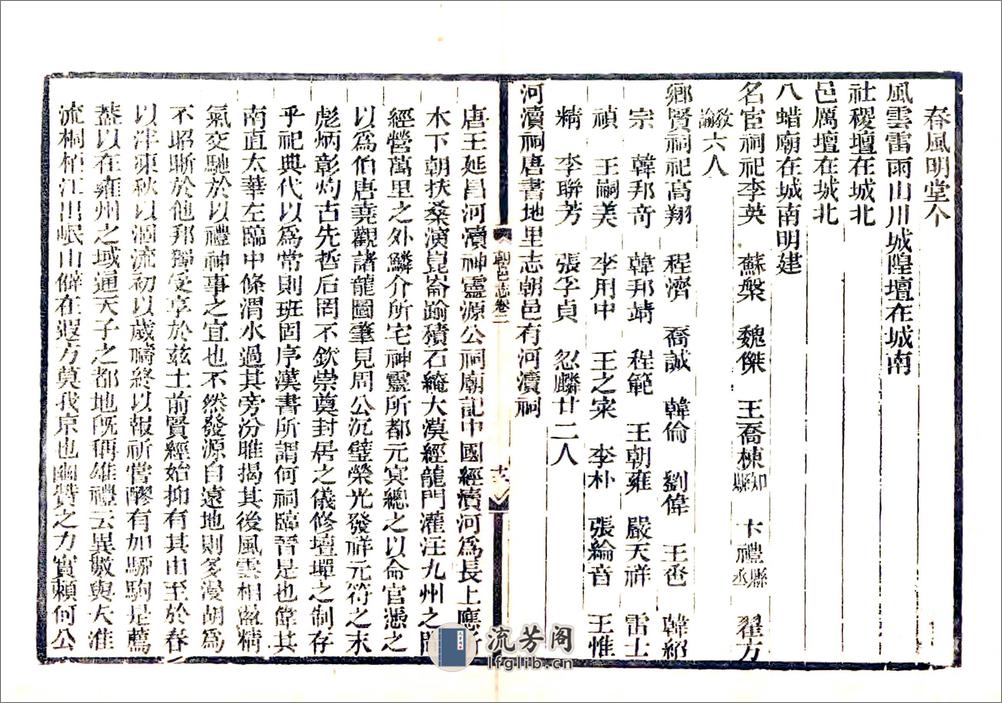 春風明堂个
風雲雷雨山川城隍壇在城南
社稷壇在城北
邑厲壇在城北
八蜡廟在城南明建
名宦祠祀李英 蘇槃 魏傑 王喬棟知縣 卞禮縣丞 翟方
教諭六人
鄉賢祠祀高翔 程濟 喬誠 韓倫 劉偉 王丞 韓紹
宗 韓邦奇 韓邦靖 程範 王朝雍 嚴天祥 雷士
禎 王嗣美 李用中 王之寀 李朴 張綸音 王惟
精 李聯芳 張孚貞 忍麟廿二人
河瀆祠唐書地里志朝邑有河瀆祠
朝邑志卷二
唐王延昌河瀆神靈源公祠廟記中國經瀆河爲長上應
水下朝扶桑演崑崙踰積石繞大漠經龍門灌注九州之間
經營萬里之外鱗介所宅神靈所都元冥總之以命官憑之
以爲伯唐堯觀諸龍圖筆見周公沉璧榮光發祥元符之末
彪炳彰灼古先哲后罔不欽崇奠封居之儀修壇墠之制存
乎祀典代以爲常則班固序漢書所謂河祠臨晉是也偉其
南直太華左臨中條渭水過其旁汾脽揭其後風雲相盪精
氣交馳於以禮神事之宜也不然發源自遠地則多漫胡爲
不昭晰於他邦獨受享於兹土前賢經始抑有其由至於春
以泮凍秋以涸流初以歲禱終以報祈嘗醪有加騂駒是薦
蓋以在雍州之域通天子之都地旣稱雄禮云異數與夫淮
流桐栢江出岷山僻在遐方莫我京也幽贊之力實賴何公
流芳阁
lfglib.cn